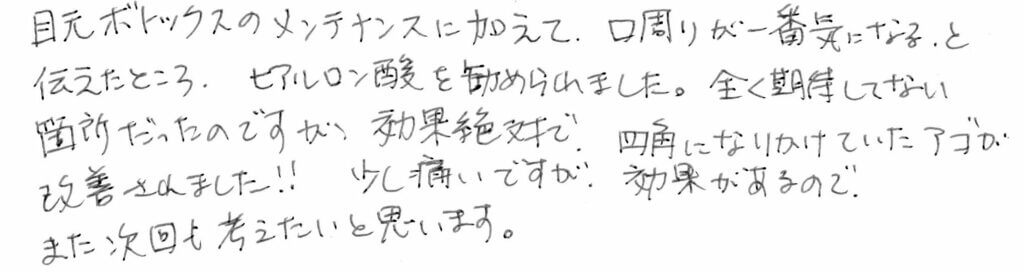 目元ボトックスのメンテナンスに加えて、口周りが一番気になる、と
伝えたところ、ヒアルロン酸を勧められました。全く期待してない
箇所だったのですが、効果絶大で、四角になりかけていたアゴが
改善されました!! 少し痛いですが、効果があるので、
また次回も考えたいと思います。